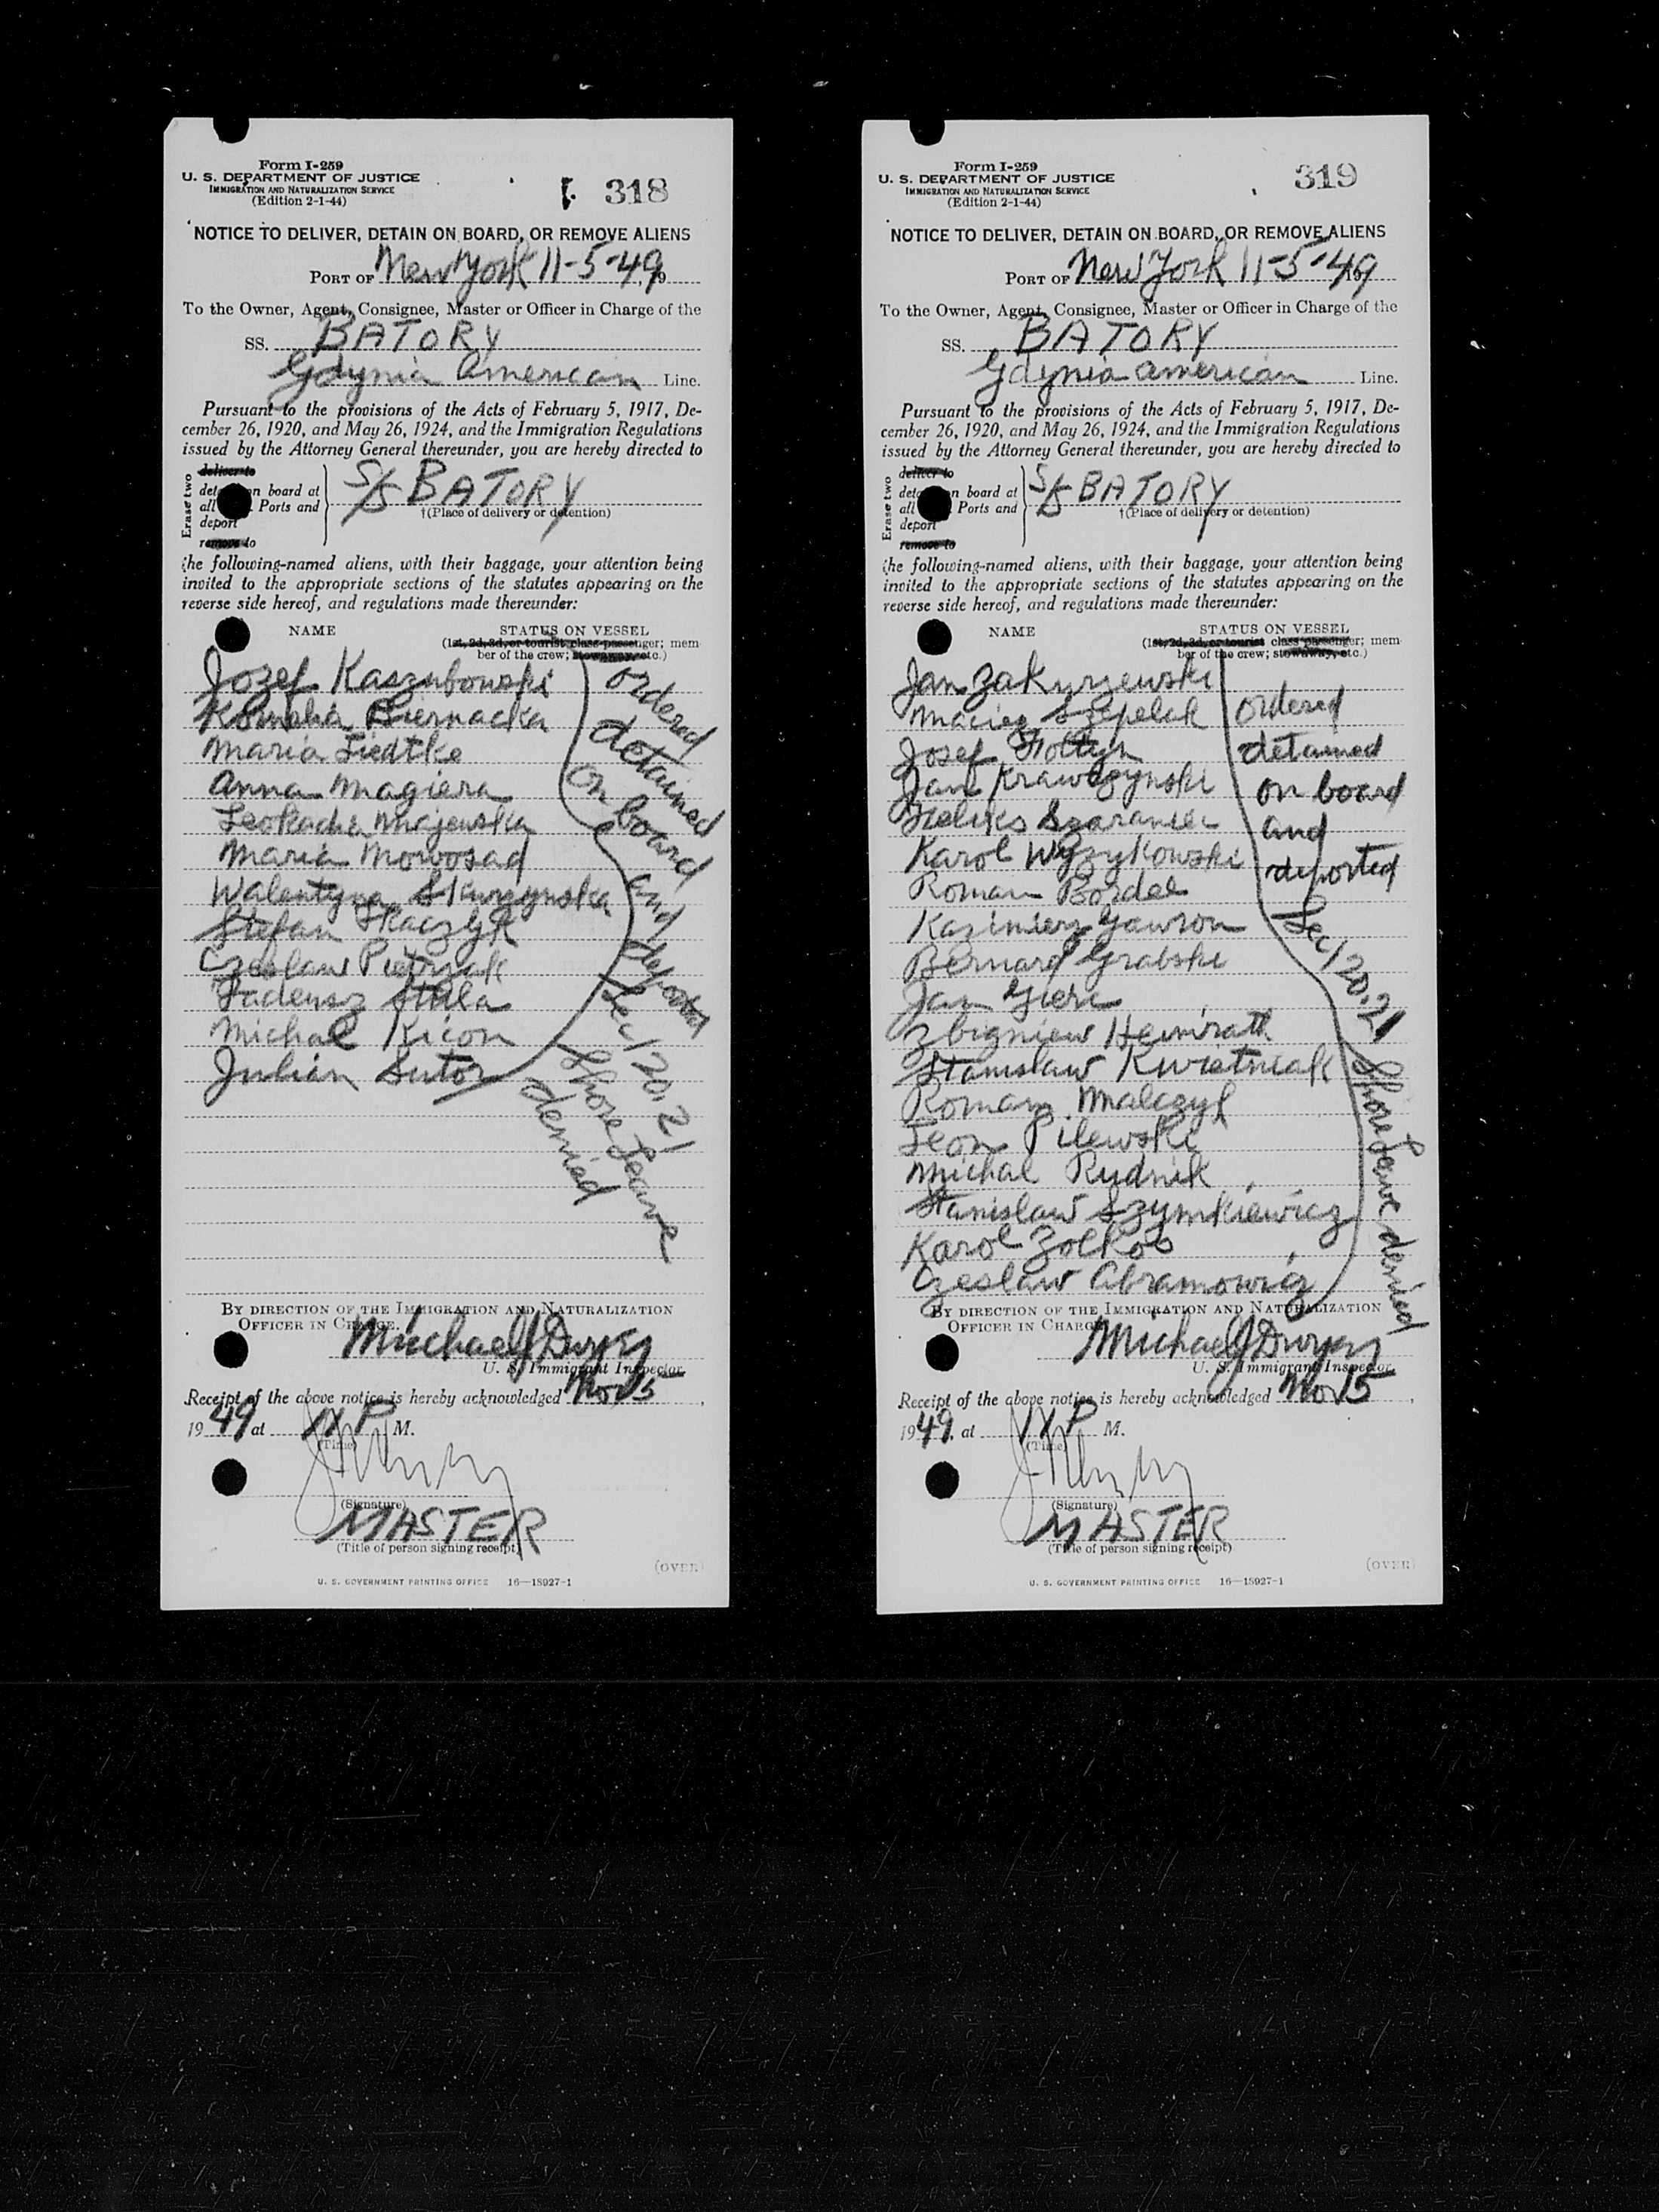 Form I-259
U. S. DEPARTMENT OF JUSTICE
IMMIGRATION AND NATURALIZATION SERVICE
(Edition 2-1-44)
318
NOTICE TO DELIVER, DETAIN ON BOARD, OR REMOVE ALIENS
PORT OF New York 11-5-49, 19
To the Owner, Agent, Consignee, Master or Officer in Charge of the
SS. BATORY
Gdynia American Line.
Pursuant to the provisions of the Acts of February 5, 1917, De-
cember 26, 1920, and May 26, 1924, and the Immigration Regulations
issued by the Attorney General thereunder, you are hereby directed to
Erase two
deliver to
on board at
all Ports and
deport
remove to
S/S BATORY
†(Place of delivery or detention)
the following-named aliens, with their baggage, your attention being
invited to the appropriate sections of the statutes appearing on the
reverse side hereof, and regulations made thereunder:
NAME STATUS ON VESSEL
(1st, 2d, 3d, or tourist class passenger; mem-
ber of the crew; stowaway, etc.)
Jozef Kaszubowski
Biernacka
Maria Liedtke
Anna Magiera
Leokadia Majewska
Maria Nowosad
Walentyna Skurzynska
Stefan Tkaczyk
Czeslaw Pietrzak
Tadeusz Stula
Michal Kicon
Julian Sutor
ordered
detained
on board
and
deported
Sec 20, 21
Shore Leave
denied
BY DIRECTION OF THE IMMIGRATION AND NATURALIZATION
OFFICER IN CHARGE.
Michael J Dwyer
U. S. Immigrant Inspector.
Receipt of the above notice is hereby acknowledged Nov 5,
1949 at P M.
(Time)
(Signature)
MASTER
(Title of person signing receipt)
(OVER)
U. S. GOVERNMENT PRINTING OFFICE 16—18927-1
Form I-259
U. S. DEPARTMENT OF JUSTICE
IMMIGRATION AND NATURALIZATION SERVICE
(Edition 2-1-44)
319
NOTICE TO DELIVER, DETAIN ON BOARD, OR REMOVE ALIENS
PORT OF New York 11-5-49
To the Owner, Agent, Consignee, Master or Officer in Charge of the
SS. BATORY
Gdynia American Line.
Pursuant to the provisions of the Acts of February 5, 1917, De-
cember 26, 1920, and May 26, 1924, and the Immigration Regulations
issued by the Attorney General thereunder, you are hereby directed to
Erase two
deliver to
on board at
all Ports and
deport
remove to
S/S BATORY
†(Place of delivery or detention)
the following-named aliens, with their baggage, your attention being
invited to the appropriate sections of the statutes appearing on the
reverse side hereof, and regulations made thereunder:
NAME STATUS ON VESSEL
(1st, 2d, 3d, or tourist class passenger; mem-
ber of the crew; stowaway, etc.)
Jan Zakrzewski
Maciej Szepelak
Josef Stoltyn
Jan Krawczynski
Feliks Szaraniec
Karol Wyzykowski
Roman Bordel
Kazimierz Gawron
Bernard Grabski
Jan Gierc
Zbigniew Heinrath
Stanislaw Kwietniak
Roman Malczyk
Leon Pilewski
Michal Rudnik
Stanislaw Szymkiewicz
Karol Zolkos
Czeslaw Abramowicz
ordered
detained
on board
and
deported
Sec 20, 21
Shore Leave denied
BY DIRECTION OF THE IMMIGRATION AND NATURALIZATION
OFFICER IN CHARGE.
Michael J Dwyer
U. S. Immigrant Inspector.
Receipt of the above notice is hereby acknowledged Nov 5,
1949, at P M.
(Time)
(Signature)
MASTER
(Title of person signing receipt)
(OVER)
U. S. GOVERNMENT PRINTING OFFICE 16—18927-1